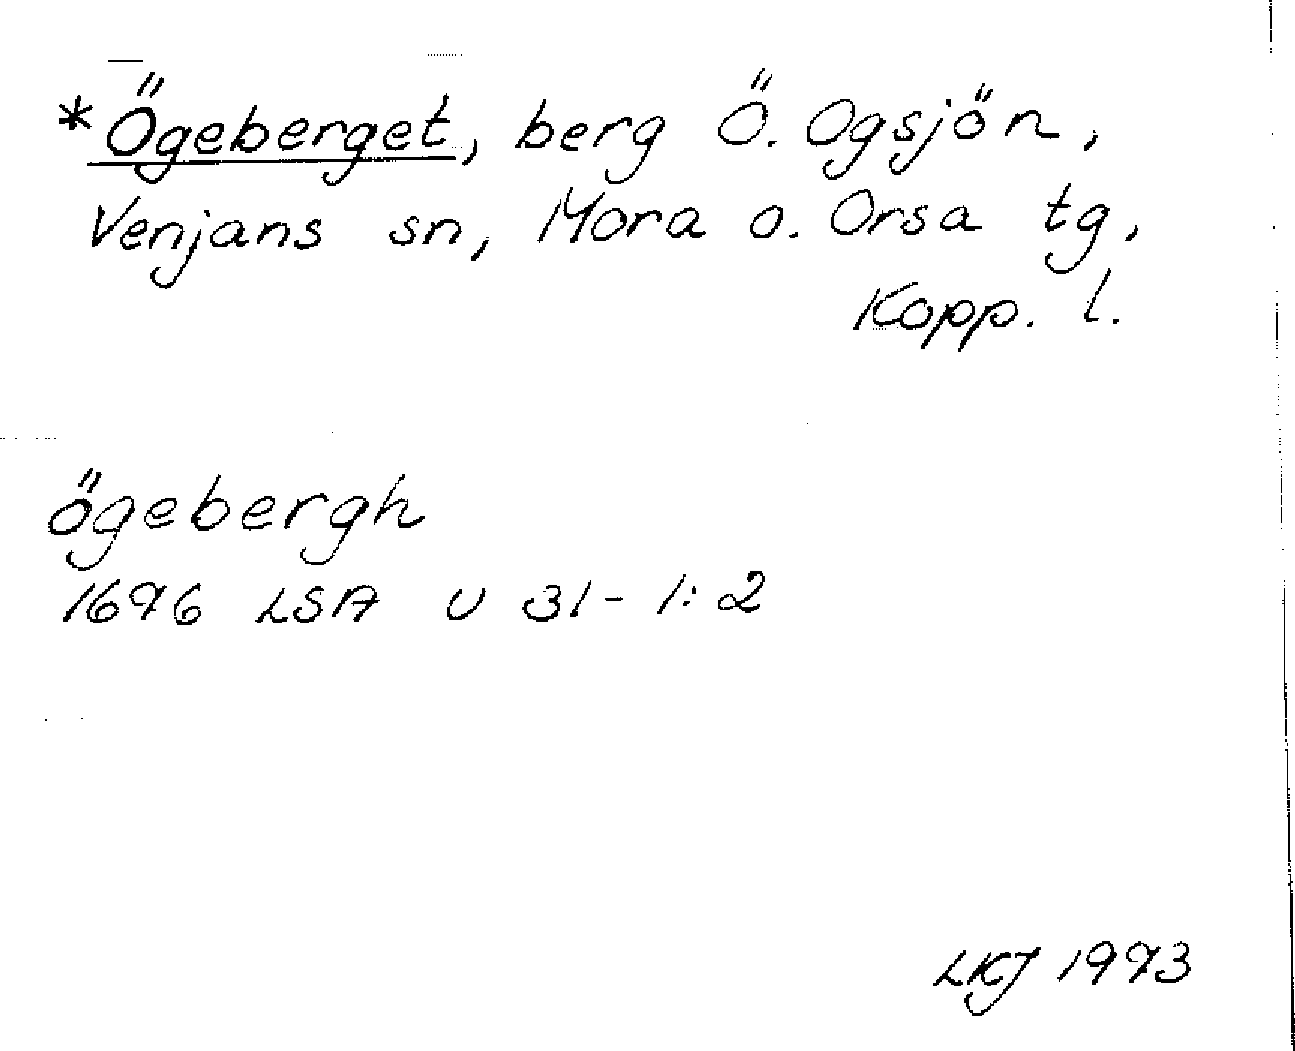 *Ögeberget, berg Ö. Ogsjön,
Venjans sn, Mora o. Orsa tg,
Kopp. l.
ögebergh
1696 LSA U 31-1:2
LKJ 1973